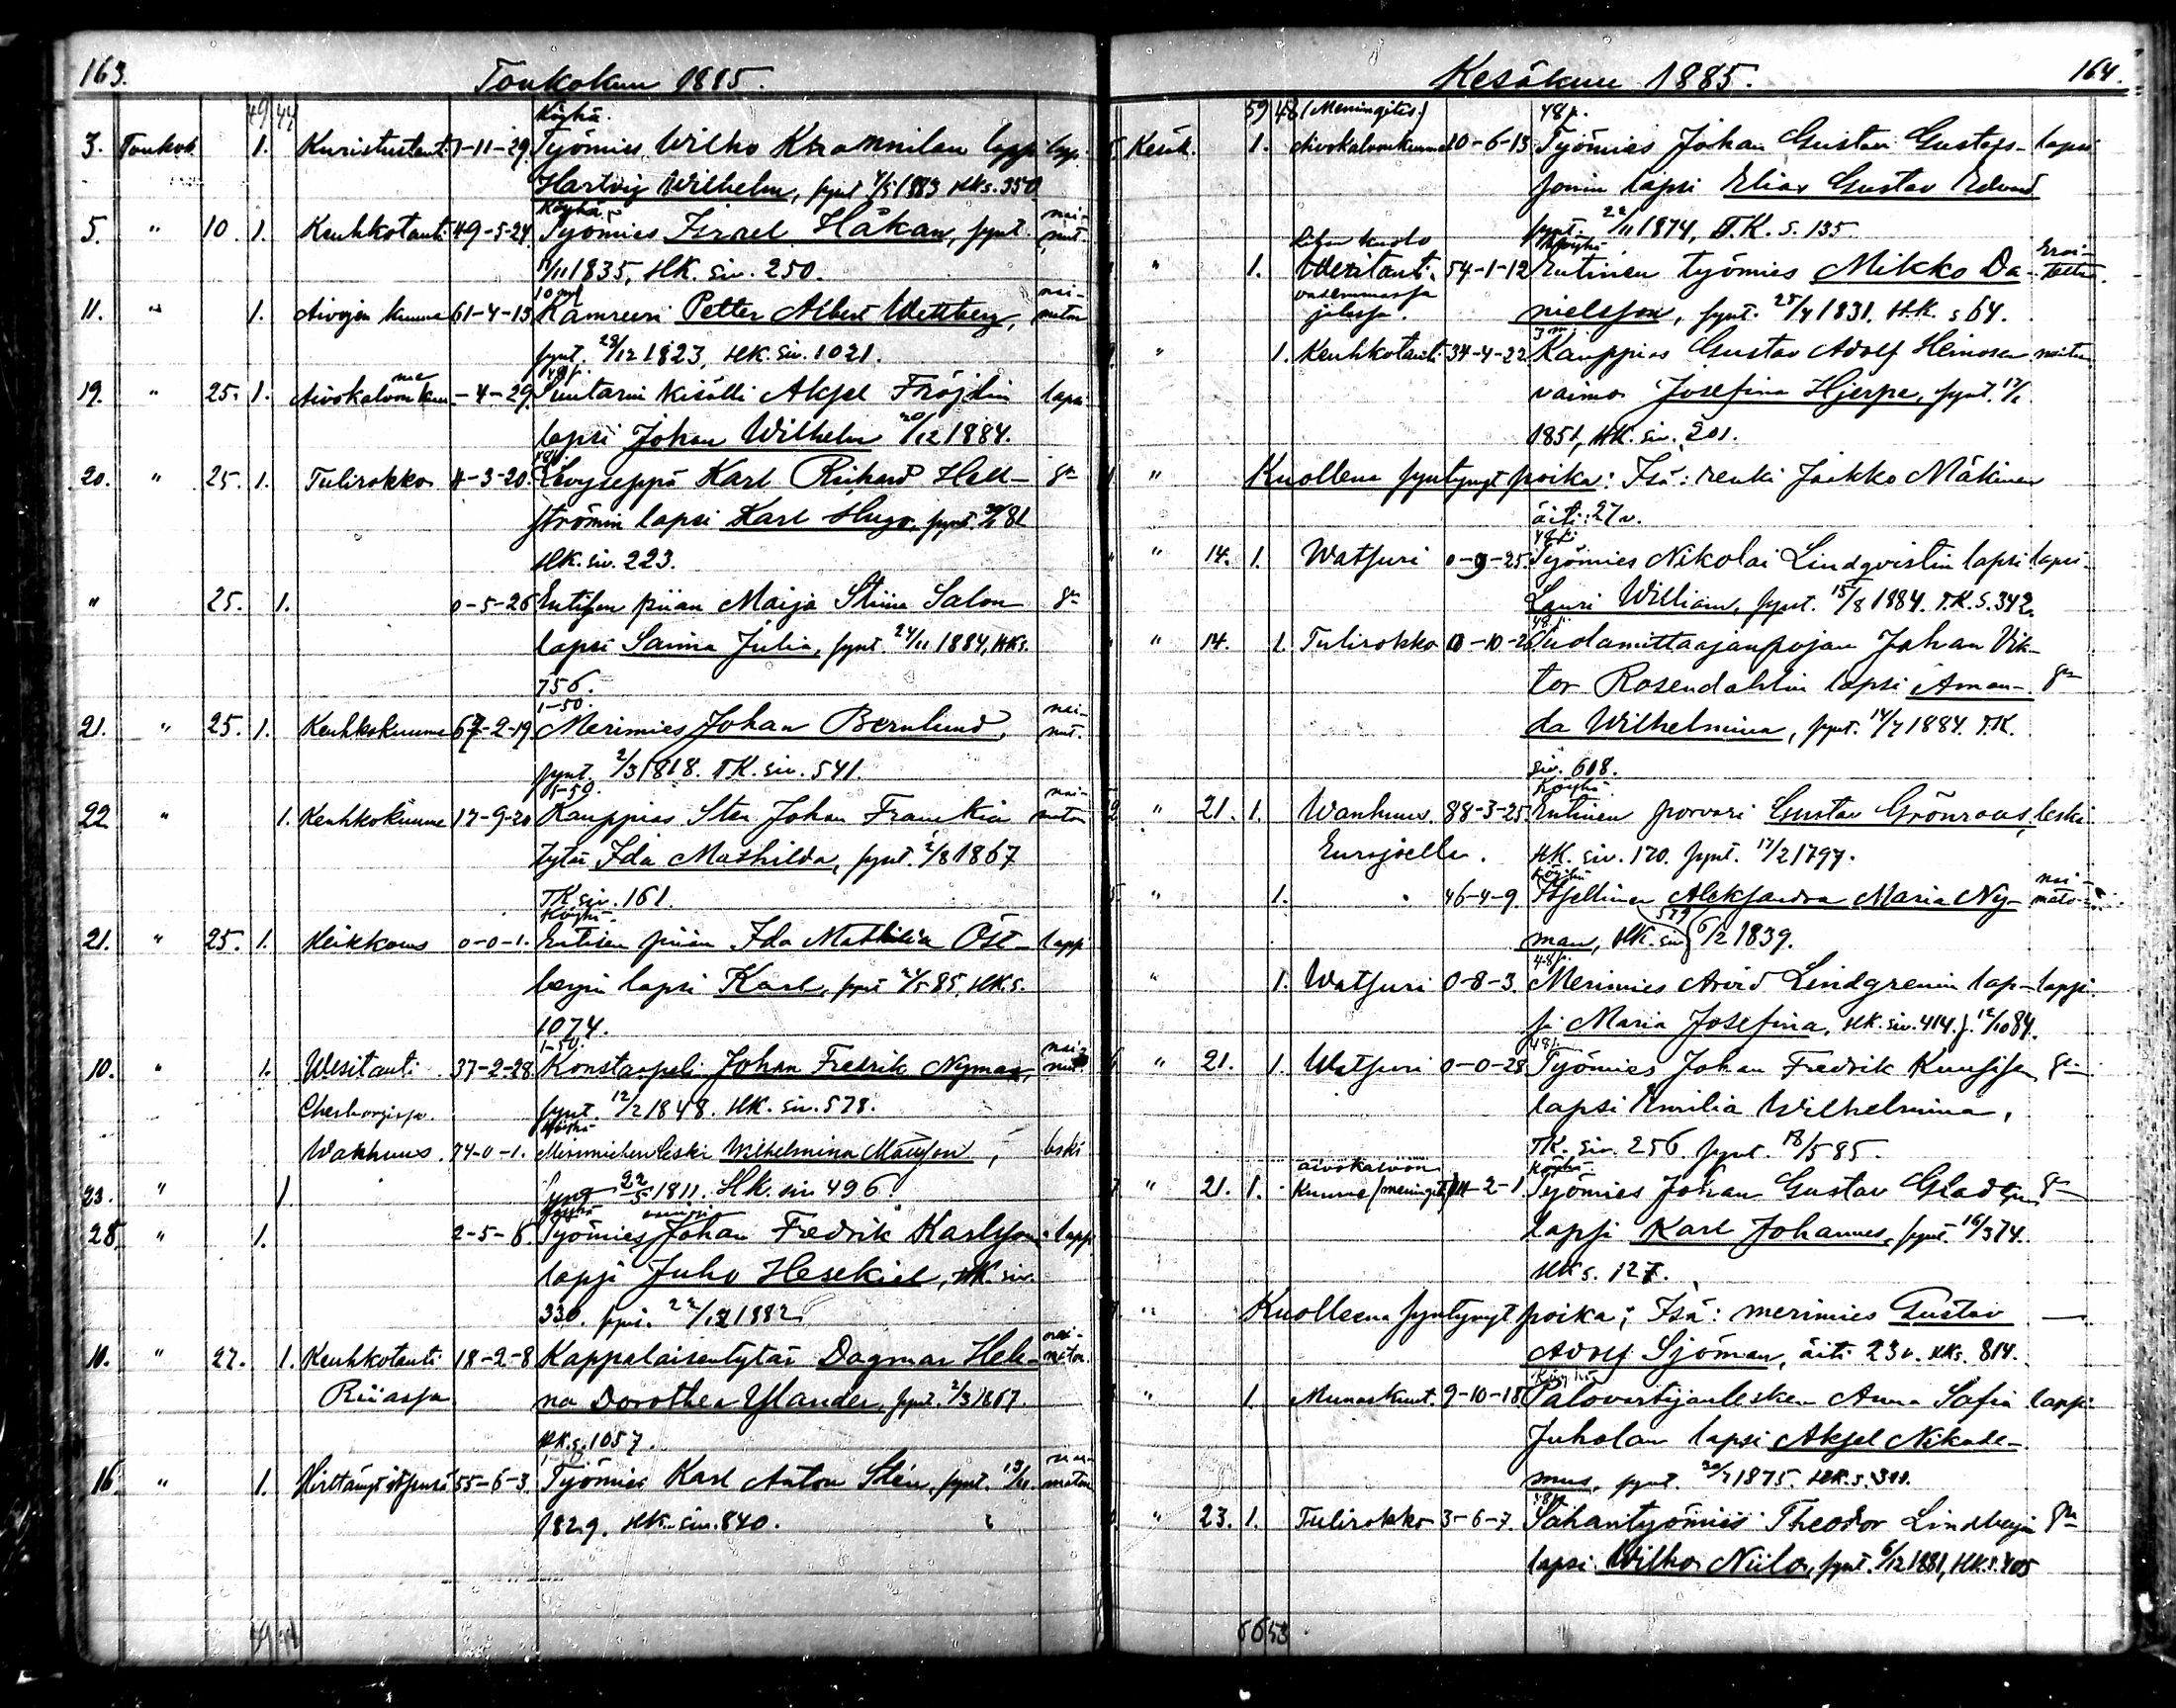 163.
Toukokuu 1885.
49 44
Köyhä.
3. Toukok. 1. Kuristustaut. 1-11-29. Työmies Wilho Krannilan lapsi laps.
Hartvig Wilhelm, synt. 4/5 1883 HK s. 350
Köyhä. nai-
5. " 10. 1. Keuhkotauti 49-5-24 Työmies Israel Håkan, synt. nut.
11/11 1835, HK. siv. 250.
10 mk nai-
11. " 1. Aivojen kuume 61-4-13 Kamreeri Petter Albert Wettberg, maton
synt. 28/12 1823, HK. siv. 1021.
48 p.
19. " 25. 1. Aivokalvon kuume -4-29. Suutarin kisälli Aksel Fröjdin lapsi
lapsi Johan Wilhelm 20/12 1884.
48 p.
20. " 25. 1. Tulirokko 4-3-20. Levyseppä Karl Richard Hell- sn
strömin lapsi Karl Hugo, synt. 30/1 81
HK. siv. 223.
" 25. 1. 0-5-26 Entisen piian Maija Stiina Salon sn
lapsi Saima Julia, synt. 24/11 1884, HK s.
756.
1-50. nai-
21. " 25. 1. Keuhkokuume 67-2-19 Merimies Johan Bernlund, nut.
synt. 2/3 1818. TK. siv. 541.
1-50. nai-
22 " 1. Keuhkokuume 17-9-20 Kauppias Sten Johan Franckin maton
tytär Ida Mathilda, synt. 2/8 1867
TK siv. 161.
Köyhä.
21. " 25. 1. Heikkous 0-0-1. Entisen piian Ida Mathilda Öst- lapsi
bergin lapsi Karl, synt. 21/5 85. HK. s.
1074.
1-50. nai-
10. " 1. Wesitauti 37-2-28 Konstaapeli Johan Fredrik Nyman, nut
Cherbourgissa. synt. 12/2 1848. HK. siv. 578.
Köyhä
Wanhuus. 74-0-1. Merimiehen leski Wilhelmina Månsson, leski
23. " 1. synt 22/5 1811. HK. siv 496.
Köyhä
28. " 1. 2-5-6. Työmies Johan Fredrik Karlsson lapsi
lapsi Juho Hesekiel, HK. siv.
330. synt. 22/12 1882
nai-
10. " 27. 1. Keuhkotauti 18-2-8 Kappalaisentytär Dagmar Hele- maton
Riiassa na Dorothea Ylander, synt. 2/3 1867.
HK. s. 1057.
16. " 1. Hirttänyt itsensä 55-6-3. Työmies Karl Anton Stén, synt. 13/11 maton
1829. HK. siv. 840.
Kesäkuu 1885.
164.
59 48 (Meningitis.) 48 p.
Kesäk. 1. Aivokalvonkuume 10-6-13 Työmies Johan Gustav Gustafs- lapsi
sonin lapsi Elias Gustav Edvard
synt. 22/11 1874, T.K. s. 135.
Köyhä
" 1. Wesitauti 54-1-12 Entinen työmies Mikko Da-
vasemmassa
jalassa. nielsson, synt. 25/4 1831. HK. s 64.
3 m.
" 1. Keuhkotauti 34-4-22. Kauppias Gustav Adolf Heinosen naitu
vaimo Josefina Hjerpe, synt. 17/1
1851, HK. siv. 201.
" Kuollena syntynyt poika: Isä: renki Jaakko Mäkinen
äiti: 27 v.
48 p.
" 14. 1. Watsuri 0-9-25. Työmies Nikolai Lindqvistin lapsi lapsi.
Lauri William, synt. 15/8 1884. T.K. S. 342.
48 p.
" 14. 1. Tulirokko 0-10-26 Suolamittaajanpojan Johan Vik-
tor Rosendahlin lapsi Aman- sn
da Wilhelmina, synt. 14/7 1884. T.K.
siv. 618.
Köyhä.
" 21. 1. Wanhuus. 88-3-25. Entinen porvari Gustav Grönroos, leski
Eurajoella. HK. siv. 170. synt. 17/2 1797.
Köyhä nai-
" 1. 46-4-9. Itsellinen Aleksandra Maria Ny- mato-
man, HK. siv 579 6/2 1839.
48 p.
" 1. Watsuri 0-8-3. Merimies Arvid Lindgrenin lap- lapsi.
si Maria Josefina, HK. siv. 414. s. 12/10 84.
48 p.
" 21. 1. Watsuri 0-0-28 Työmies Johan Fredrik Kuusisen sn
lapsi Emilia Wilhelmina,
TK. siv. 256. synt. 18/5 85.
aivokalvon Köyhä
" 21. 1. Kuume (meningitis) 11-2-1. Työmies Johan Gustav Gladhin sn
lapsi Karl Johannes, synt. 16/3 74.
HK s. 127.
" Kuolleena syntynyt poika; Isä: merimies Gustav —
Adolf Sjöman, äiti 23 v. HK s. 814.
Köyhä
" 1. Munaskuut. 9-10-18 Palovartijanlesken Anna Sofia lapsi
Juholan lapsi Aksel Nikode-
mus, synt. 30/7 1875. HK. s. 311.
48 p.
" 23. 1. Tulirokko 3-6-7. Sahantyömies Theodor Lindbergin sn
lapsi Wilho Niilo, synt. 6/12 1881, HK. s. 405
59 48
66 53